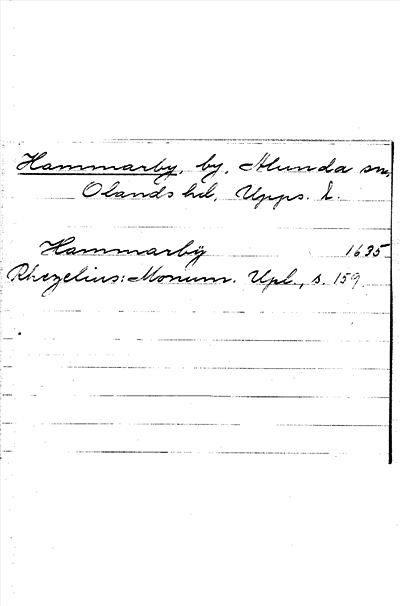 Hammarby, by, Alunda sn,
Olands hd, Upps. l.
Hammarbÿ 1635
Rhezelius: Monum. Upl., s. 159